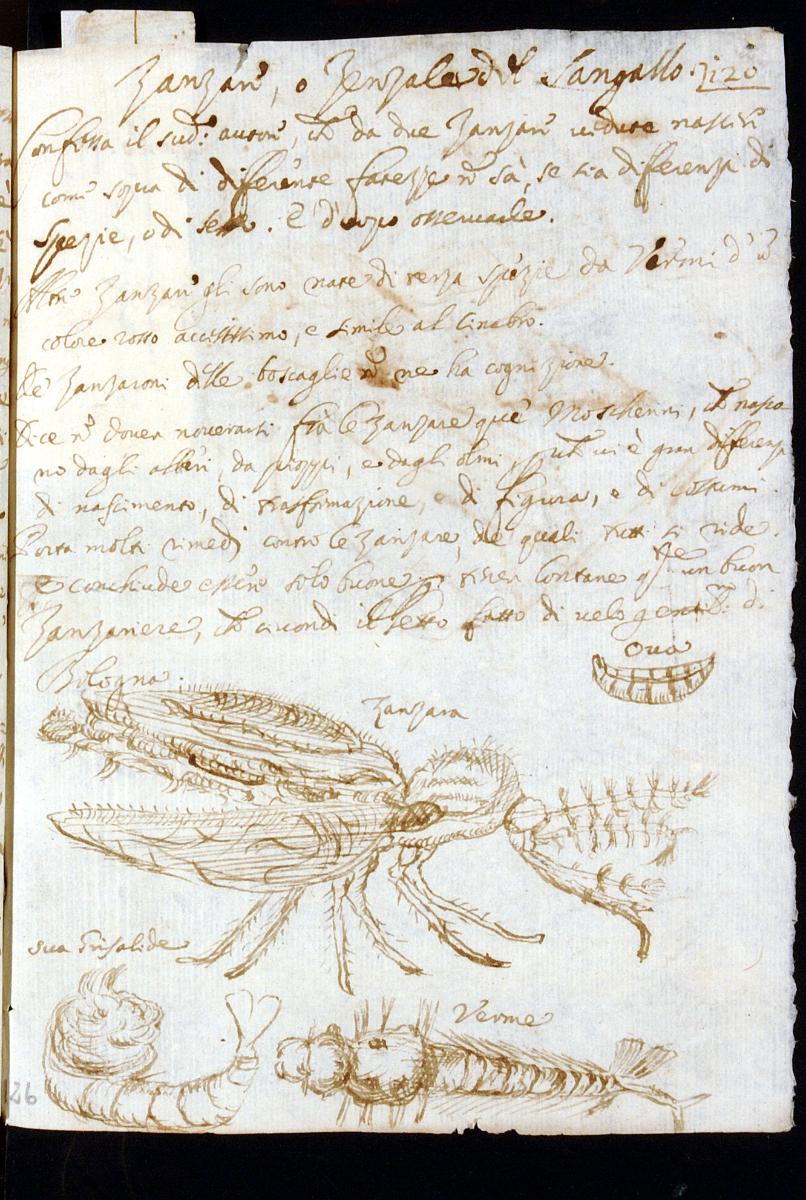 Zanzare, o Zenzale del Sangallo. 120
Confessa il sud.º autore, che da due Zanzare vedute nascere
come sopra di differente fatezze nõ sà, se sia differenza di
spezie, o di sesso. È d'uopo osservarle.
Altre Zanzare gli sono nate di terza spezie da Vermi d'ũ
colore rosso accesissimo, e simile al cinabro.
De Zanzaroni delle boscaglie nõ ne ha cognizione.
Dice nõ dover noverarsi frà le Zanzare que' Moscherini, che nasco
no dagli alberi, da pioppi, e dagli olmi, che vi è gran differenza
di nascimento, di trasformazione, e di figura, e di costumi.
Porta molti rimedj contro le Zanzare, de quali tutti si ride.
e conchiude essere solo buone tener lontane un buon
Zanzariere, che circondi il letto fatto di velo gentil.º di
Bologna.
Ova
Zanzara
sua Crisalide
Verme
126